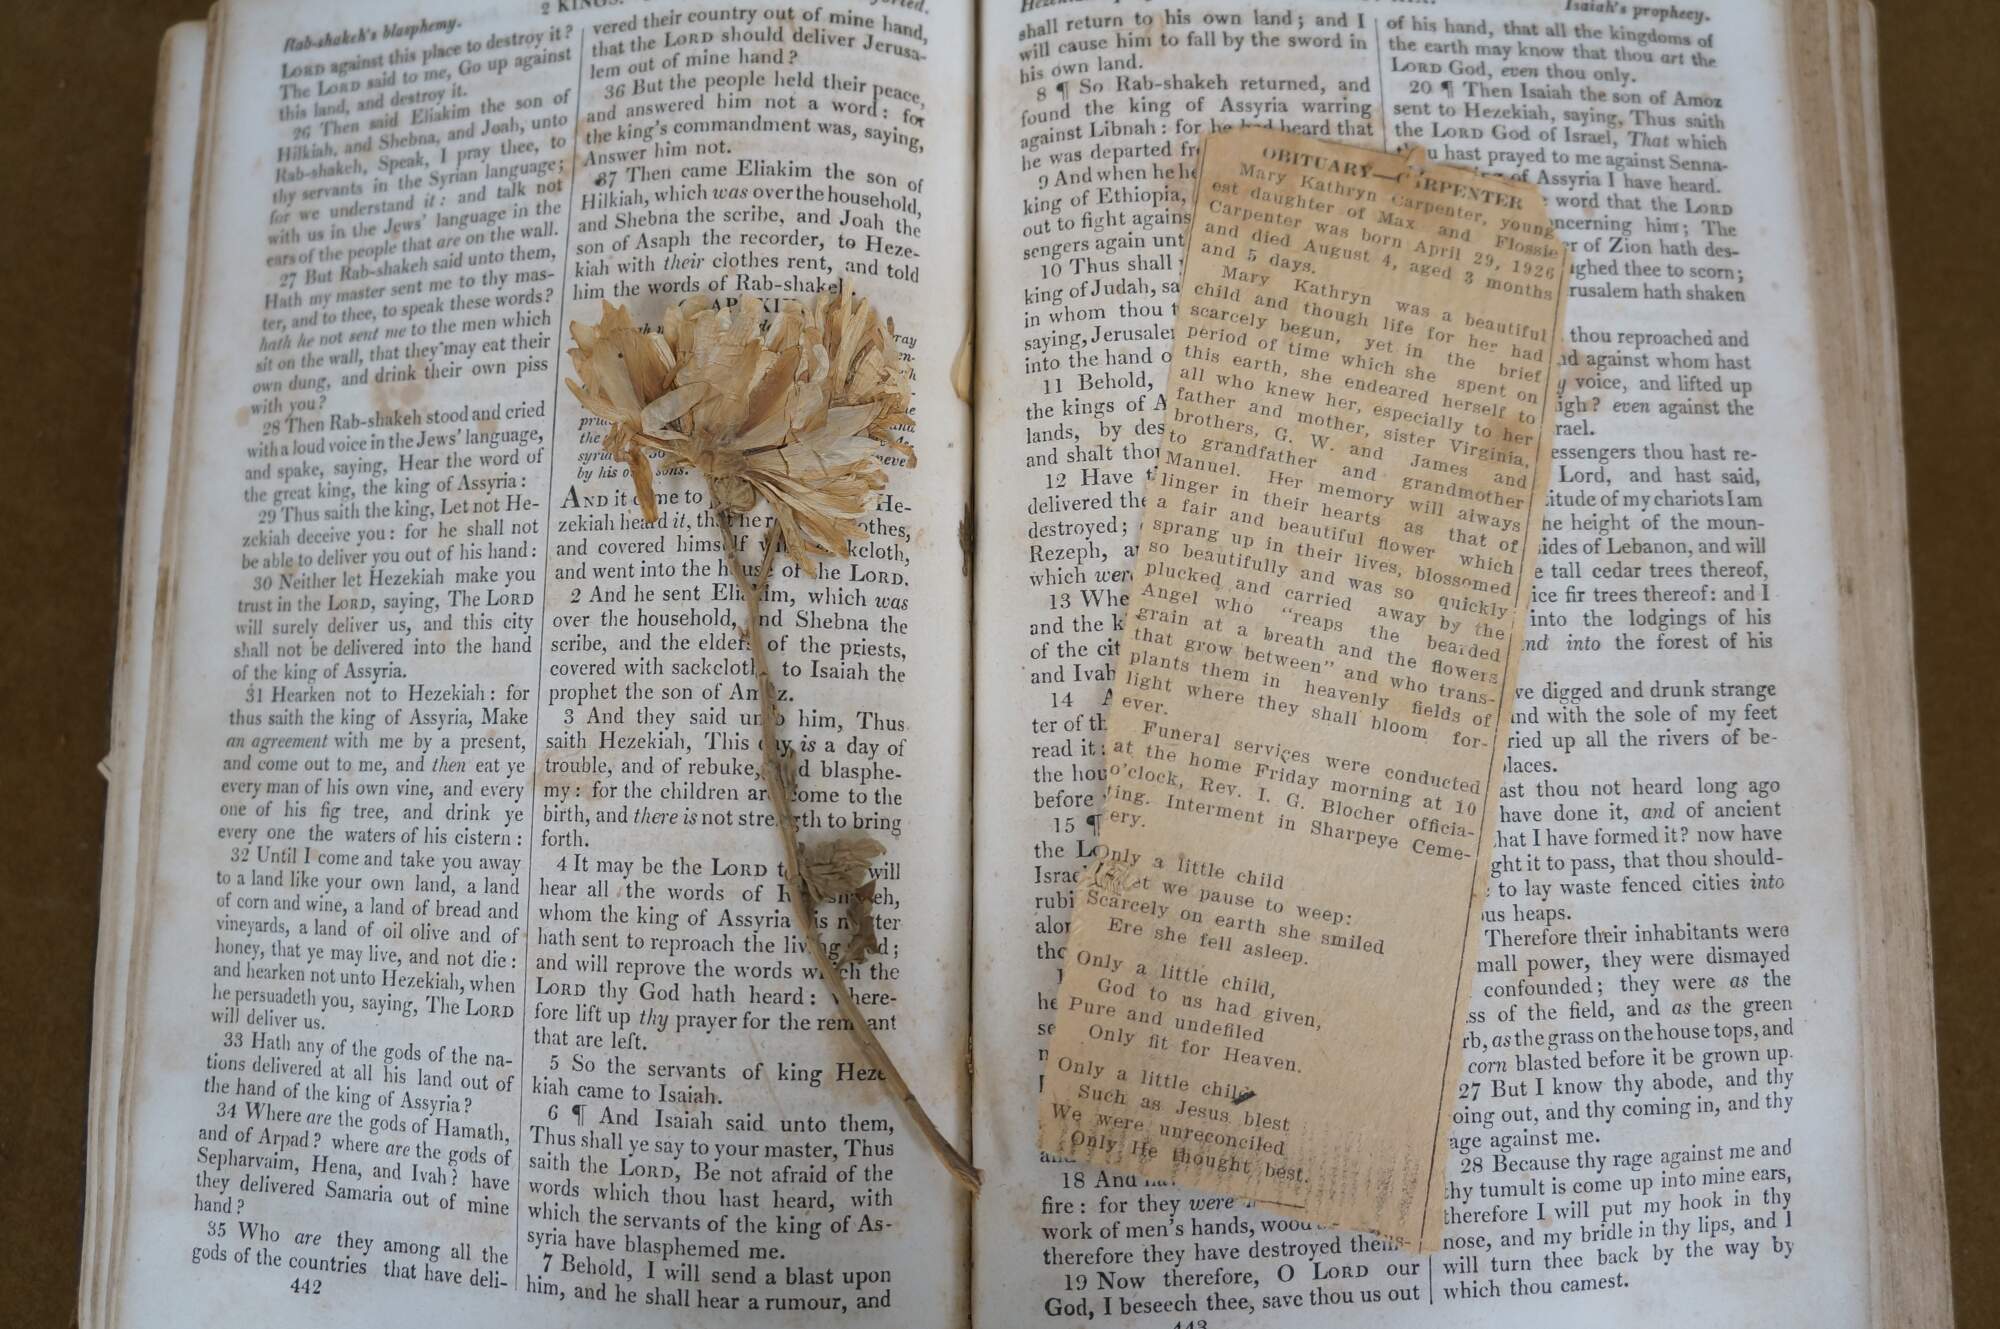 Rab-shakeh's blasphemy.
LORD against this place to destroy it?
The LORD said to me, Go up against
this land, and destroy it.
26 Then said Eliakim the son of
Hilkiah, and Shebna, and Joah, unto
Rab-shakeh, Speak, I pray thee, to
thy servants in the Syrian language;
for we understand it: and talk not
with us in the Jews' language in the
ears of the people that are on the wall.
27 But Rab-shakeh said unto them,
Hath my master sent me to thy mas-
ter, and to thee, to speak these words?
hath he not sent me to the men which
sit on the wall, that they may eat their
own dung, and drink their own piss
with you?
28 Then Rab-shakeh stood and cried
with a loud voice in the Jews' language,
and spake, saying, Hear the word of
the great king, the king of Assyria:
29 Thus saith the king, Let not He-
zekiah deceive you: for he shall not
be able to deliver you out of his hand:
30 Neither let Hezekiah make you
trust in the LORD, saying, The LORD
will surely deliver us, and this city
shall not be delivered into the hand
of the king of Assyria.
31 Hearken not to Hezekiah: for
thus saith the king of Assyria, Make
an agreement with me by a present,
and come out to me, and then eat ye
every man of his own vine, and every
one of his fig tree, and drink ye
every one the waters of his cistern:
32 Until I come and take you away
to a land like your own land, a land
of corn and wine, a land of bread and
vineyards, a land of oil olive and of
honey, that ye may live, and not die:
and hearken not unto Hezekiah, when
he persuadeth you, saying, The LORD
will deliver us.
33 Hath any of the gods of the na-
tions delivered at all his land out of
the hand of the king of Assyria?
34 Where are the gods of Hamath,
and of Arpad? where are the gods of
Sepharvaim, Hena, and Ivah? have
they delivered Samaria out of mine
hand?
35 Who are they among all the
gods of the countries that have deli-
442
2 KINGS.
vered their country out of mine hand,
that the LORD should deliver Jerusa-
lem out of mine hand?
36 But the people held their peace,
and answered him not a word: for
the king's commandment was, saying,
Answer him not.
37 Then came Eliakim the son of
Hilkiah, which was over the household,
and Shebna the scribe, and Joah the
son of Asaph the recorder, to Heze-
kiah with their clothes rent, and told
him the words of Rab-shakeh.
by his own sons.
AND it came to He-
zekiah heard it, that he clothes,
and covered himself with sackcloth,
and went into the house of the LORD.
2 And he sent Eliakim, which was
over the household, and Shebna the
scribe, and the elders of the priests,
covered with sackcloth, to Isaiah the
prophet the son of Amoz.
3 And they said unto him, Thus
saith Hezekiah, This day is a day of
trouble, and of rebuke, and blasphe-
my: for the children are come to the
birth, and there is not strength to bring
forth.
4 It may be the LORD thy will
hear all the words of Rab-shakeh,
whom the king of Assyria his master
hath sent to reproach the living God;
and will reprove the words which the
LORD thy God hath heard: where-
fore lift up thy prayer for the remnant
that are left.
5 So the servants of king Heze-
kiah came to Isaiah.
6 ¶ And Isaiah said unto them,
Thus shall ye say to your master, Thus
saith the LORD, Be not afraid of the
words which thou hast heard, with
which the servants of the king of As-
syria have blasphemed me.
7 Behold, I will send a blast upon
him, and he shall hear a rumour, and
shall return to his own land; and I
will cause him to fall by the sword in
his own land.
8 ¶ So Rab-shakeh returned, and
found the king of Assyria warring
against Libnah: for he had heard that
he was departed
9 And when he
king of Ethiopia,
out to fight
sengers again
10 Thus shall
king of Judah,
in whom thou
saying,
into the hand
11 Behold,
the kings of
lands, by
and shalt
12 Have
delivered
destroyed;
Rezeph,
which were
13
and the
of the
and Ivah
14
ter of
read it:
the
before
15 ¶
the
18 And
fire: for they were
work of men's hands, wood
therefore they have destroyed them-
19 Now therefore, O LORD our
God, I beseech thee, save thou us out
443
OBITUARY—CARPENTER
Mary Kathryn Carpenter, young-
est daughter of Max and Flossie
Carpenter was born April 29, 1926
and died August 4, aged 3 months
and 5 days.
Mary Kathryn was a beautiful
child and though life for her had
scarcely begun, yet in the brief
period of time which she spent on
this earth, she endeared herself to
all who knew her, especially to her
father and mother, sister Virginia,
brothers, G. W. and James and
to grandfather and grandmother
Manuel. Her memory will always
linger in their hearts as that of
a fair and beautiful flower which
sprang up in their lives, blossomed
so beautifully and was so quickly
plucked and carried away by the
Angel who "reaps the bearded
grain at a breath and the flowers
that grow between" and who trans-
plants them in heavenly fields of
light where they shall bloom for-
ever.
Funeral services were conducted
at the home Friday morning at 10
o'clock, Rev. I. G. Blocher officia-
ting. Interment in Sharpeye Ceme-
ery.
Only a little child
we pause to weep:
Scarcely on earth she smiled
Ere she fell asleep.
Only a little child,
God to us had given,
Pure and undefiled
Only fit for Heaven.
Only a little child
Such as Jesus blest
We were unreconciled
Only He thought best.
Isaiah's prophecy.
of his hand, that all the kingdoms of
the earth may know that thou art the
LORD God, even thou only.
20 ¶ Then Isaiah the son of Amoz
sent to Hezekiah, saying, Thus saith
the LORD God of Israel, That which
thou hast prayed to me against Senna-
of Assyria I have heard.
word that the LORD
concerning him; The
of Zion hath des-
laughed thee to scorn;
Jerusalem hath shaken
thou reproached and
and against whom hast
voice, and lifted up
high? even against the
Israel.
messengers thou hast re-
Lord, and hast said,
multitude of my chariots I am
the height of the moun-
sides of Lebanon, and will
tall cedar trees thereof,
choice fir trees thereof: and I
into the lodgings of his
and into the forest of his
have digged and drunk strange
and with the sole of my feet
dried up all the rivers of be-
places.
Hast thou not heard long ago
have done it, and of ancient
that I have formed it? now have
brought it to pass, that thou should-
to lay waste fenced cities into
heaps.
Therefore their inhabitants were
small power, they were dismayed
confounded; they were as the
grass of the field, and as the green
herb, as the grass on the house tops, and
corn blasted before it be grown up.
27 But I know thy abode, and thy
going out, and thy coming in, and thy
rage against me.
28 Because thy rage against me and
thy tumult is come up into mine ears,
therefore I will put my hook in thy
nose, and my bridle in thy lips, and I
will turn thee back by the way by
which thou camest.